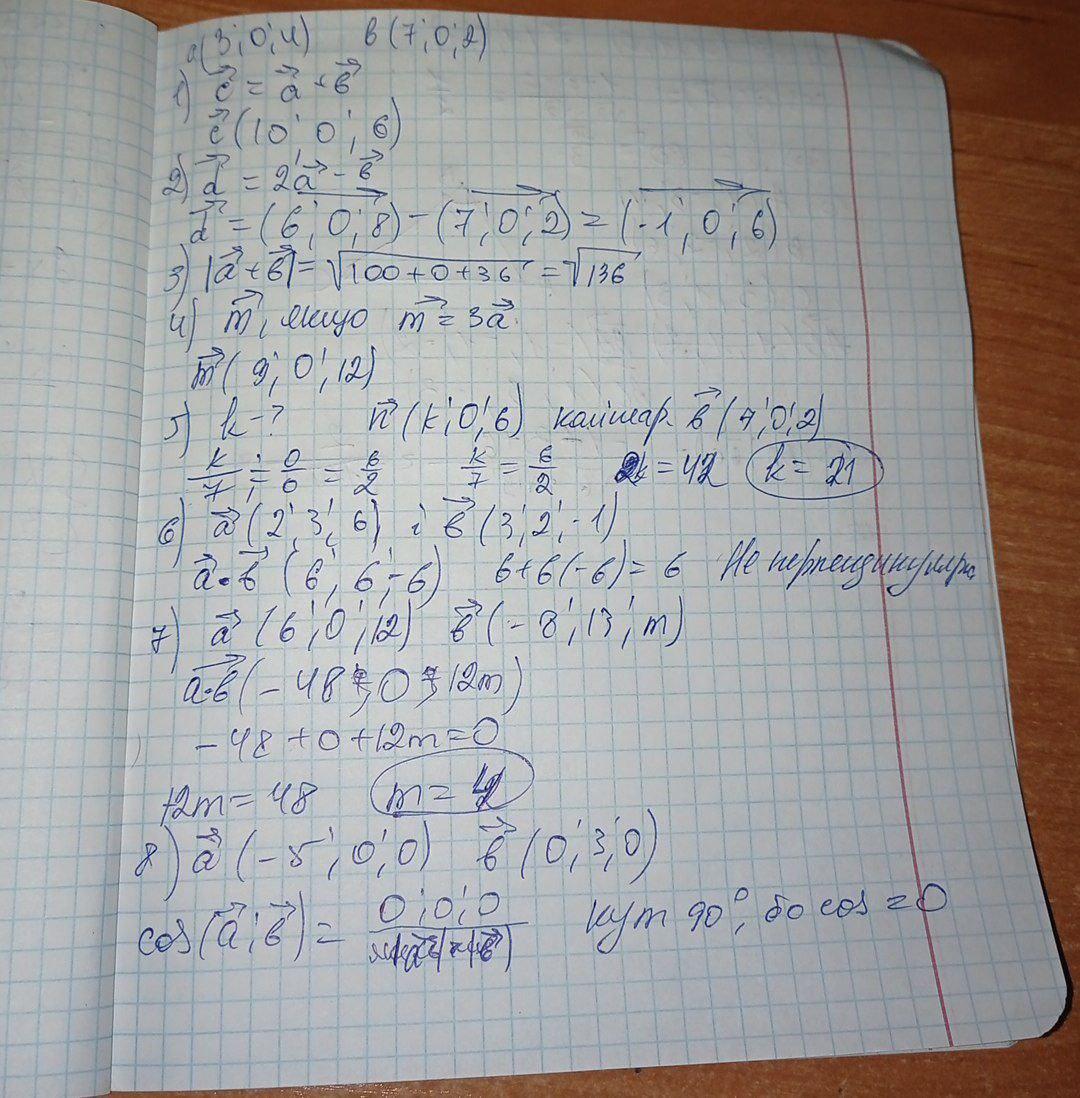 a(3; 0; 4) в(7; 0; 2)
1) c⃗ = a⃗ + в⃗
c⃗ (10; 0; 6)
2) d⃗ = 2a⃗ - в⃗
d⃗ = (6; 0; 8) - (7; 0; 2) = (-1; 0; 6)
3) |a⃗ + в⃗| = √100+0+36 = √136
4) m⃗, якщо m⃗ = 3a⃗
m⃗ (9; 0; 12)
5) k - ? n⃗ (k; 0; 6) в⃗ (7; 0; 2)
k/7 = 0/0 = 6/2 k/7 = 6/2 2k = 42 k = 21
6) a⃗ (2; 3; 6) і в⃗ (3; 2; -1)
a⃗·в⃗ (6; 6; -6) 6+6(-6) = 6 Не перпендикулярні
7) a⃗ (6; 0; 12) в⃗ (-8; 13; m)
a·в (-48 + 0 + 12m)
-48 + 0 + 12m = 0
12m = 48 m = 4
8) a⃗ (-5; 0; 0) в⃗ (0; 3; 0)
cos(a⃗; в⃗) = 0; 0; 0 / |a⃗|×|в⃗| кут 90°, бо cos = 0